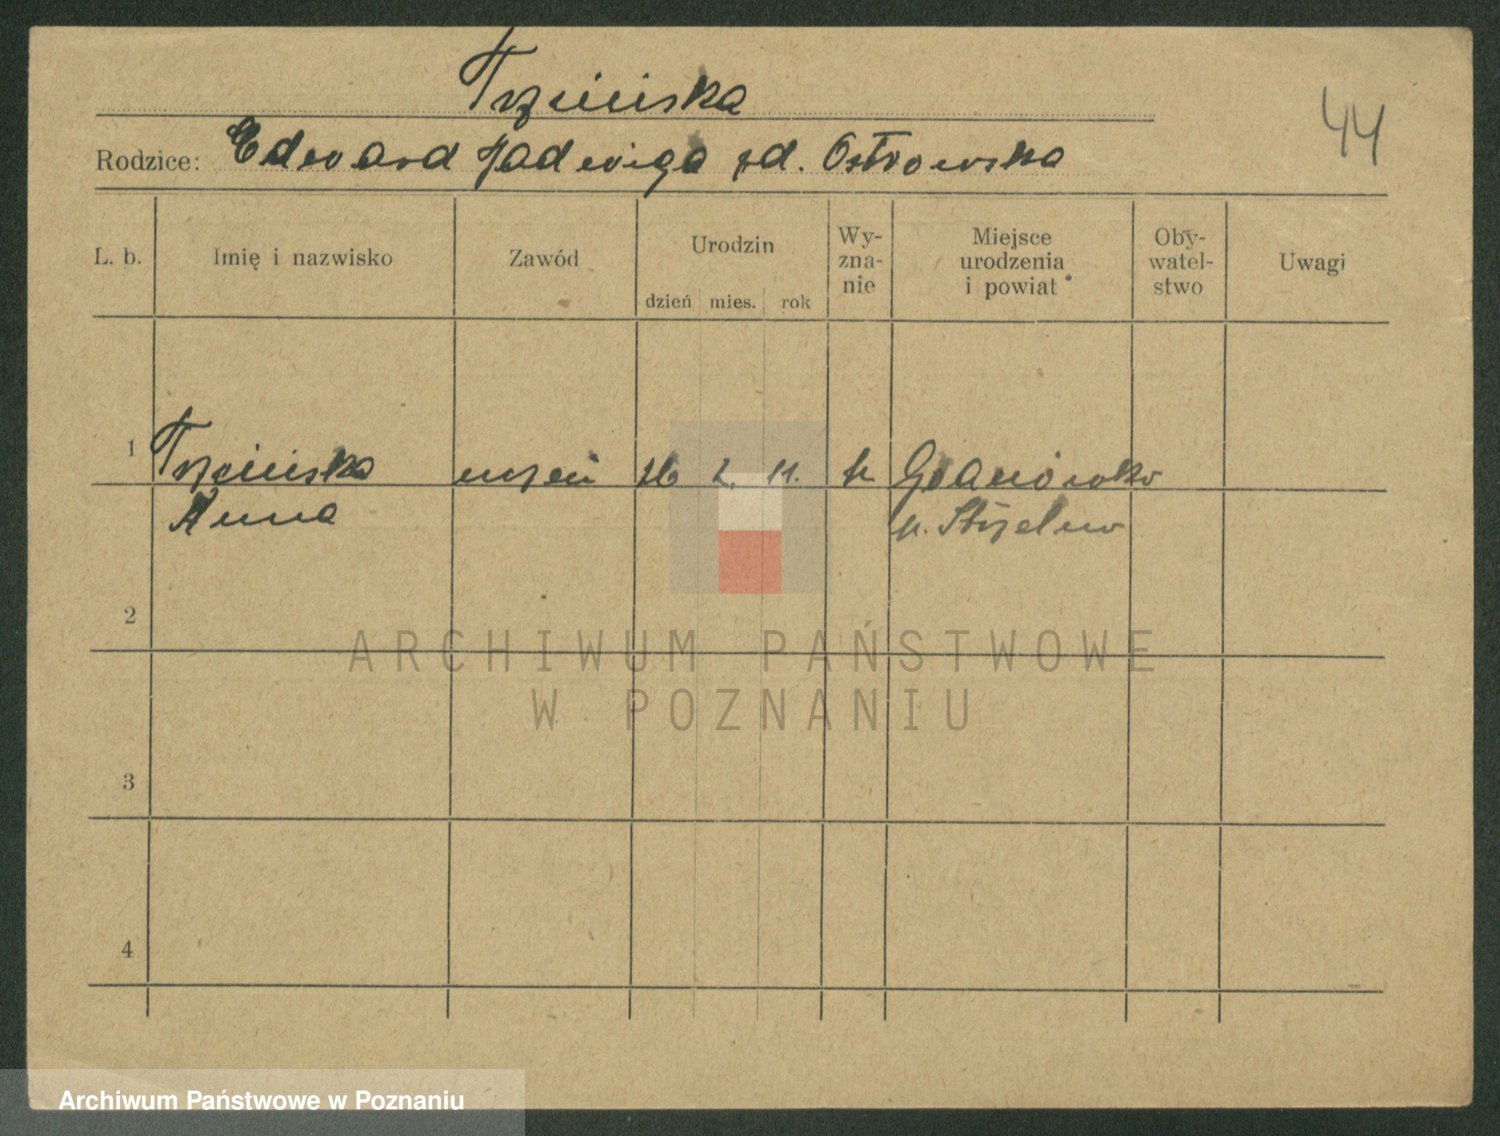 Trzcińska
44
Rodzice: Edward Jadwiga zd. Ostrowska
L. b. Imię i nazwisko Zawód Urodzin dzień mies. rok Wy-zna-nie Miejsce urodzenia i powiat Oby-watel-stwo Uwagi
1 Trzcińska uczeń 2. 11. k
Anna p. Strzelno
2
3
4
ARCHIWUM PAŃSTWOWE
W POZNANIU
Archiwum Państwowe w Poznaniu